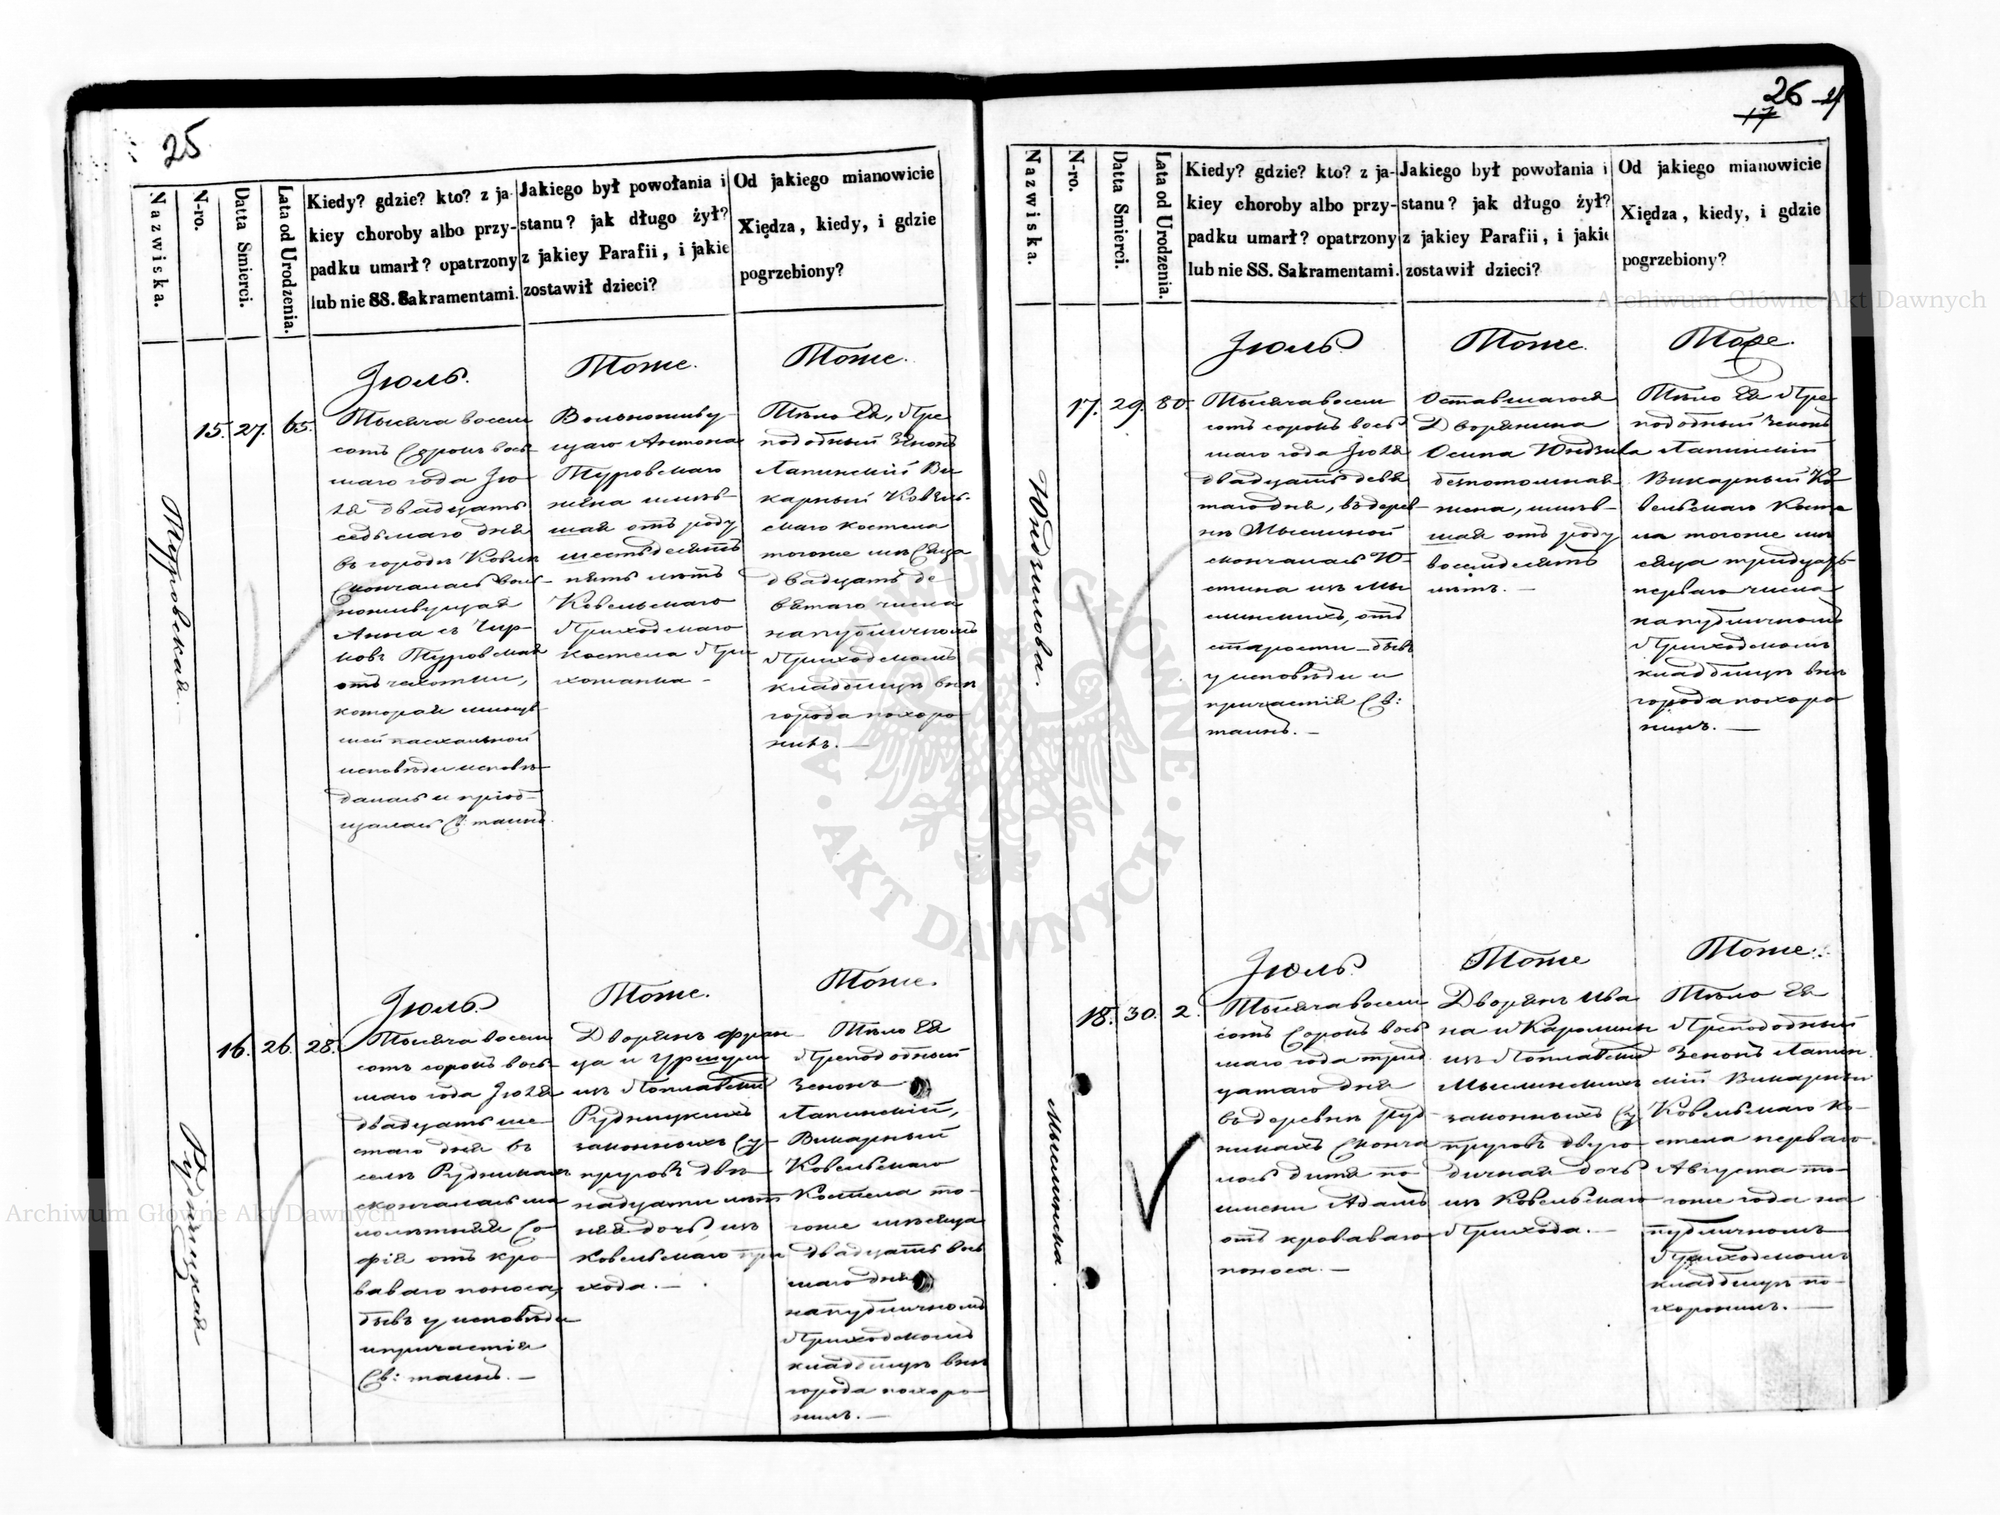 25
Nazwiska.
N-ro.
Datta Smierci.
Lata od Urodzenia.
Kiedy? gdzie? kto? z ja-
kiey choroby albo przy-
padku umarł? opatrzony
lub nie SS. Sakramentami.
Jakiego był powołania i
stanu? jak długo żył?
z jakiey Parafii, i jakie
zostawił dzieci?
Od jakiego mianowicie
Xiędza, kiedy, i gdzie
pogrzebiony?
Туровская.
15. 27. 65.
Іюль.
Тысяча восем
сотъ сорокъ вось
маго года Ію
ля двадцать
седьмаго дня
въ городѣ Ковлѣ
скончалась воль-
ноживущая
Анна съ
Туровская
отъ чахотки,
которая минув
шей пасхальной
исповѣди исповѣ
далась и пріоб-
щалась Св: таинъ
Тоже.
Вольноживу-
щаго Антона
Туровскаго
жена имѣв-
шая отъ роду
шестьдесятъ
пять лѣтъ
Ковельскаго
Приходскаго
костела При
хожанка -
Тоже.
Тѣло Ея, Пре
подобный Зенонъ
Лапинскій Ви
карный Ковель-
скаго костела
тогоже мѣсяца
двадцать де-
вятаго числа
на публичномъ
Приходскомъ
кладбищѣ внѣ
города похоро
нилъ. —
Рудницкая
16. 26. 28.
Іюль.
Тысяча восем
сотъ сорокъ вось-
маго года Іюля
двадцать ше-
стаго дня въ
селѣ Рудникахъ
скончалась ма
лолѣтняя Со-
фія отъ кро-
ваваго поноса,
бывъ у исповѣди
и причастія
Св: таинъ. —
Тоже.
Дворянъ Фран
ца и Уршули
изъ
Рудницкихъ
законныхъ Су-
пруговъ двѣ-
надцати лѣт
няя дочь изъ
Ковельскаго при
хода. —
Тоже.
Тѣло Ея
Преподобный
Зенонъ
Лапинскій,
Викарный
Ковельскаго
Костела то-
гоже мѣсяца
двадцать вось
маго дня
на публичномъ
Приходскомъ
кладбищѣ внѣ
города похоро-
нилъ. —
26
17
Nazwiska.
N-ro.
Datta Smierci.
Lata od Urodzenia.
Kiedy? gdzie? kto? z ja-
kiey choroby albo przy-
padku umarł? opatrzony
lub nie SS. Sakramentami.
Jakiego był powołania i
stanu? jak długo żył?
z jakiey Parafii, i jakie
zostawił dzieci?
Od jakiego mianowicie
Xiędza, kiedy, i gdzie
pogrzebiony?
Юндзилова.
17. 29. 80.
Іюль.
Тысяча восем
сотъ сорокъ вось
маго года Іюля
двадцать девя
таго дня, въ дерев-
нѣ Мыслиной
скончалась Ю-
стина изъ Мы
слинскихъ, отъ
старости - бывъ
у исповѣди и
причастія Св:
таинъ. —
Тоже.
Оставшагося
Дворянина
Осипа Юндзила
безпотомная
жена, имѣв-
шая отъ роду
восемдесятъ
лѣтъ. —
Тоже.
Тѣло Ея Пре
подобный Зенонъ
Лапинскій
Викарный Ко
вельскаго Косте
ла тогоже мѣ
сяца тридцать
перваго числа
на публичномъ
Приходскомъ
кладбищѣ внѣ
города похоро
нилъ. —
18. 30. 2.
Іюль.
Тысяча восем
сотъ сорокъ вось
маго года трид
цатаго дня
въ деревни Руд
никахъ сконча
лось дитя по
имени Адамъ
отъ кроваваго
поноса. —
Тоже
Дворянъ Ива
на и Каролины
изъ
Мыслинскихъ
законныхъ Су
пруговъ двуго
дичная дочь
изъ Ковельскаго
Прихода. —
Тоже.
Тѣло Ея
Преподобный
Зенонъ Лапин
скій Викарный
Ковельскаго Ко-
стела перваго
Августа то-
гоже года на
публичномъ
Приходскомъ
кладбищѣ по-
хоронилъ. —
Archiwum Główne Akt Dawnych
Archiwum Główne Akt Dawnych
ARCHIWUM GŁÓWNE
AKT DAWNYCH